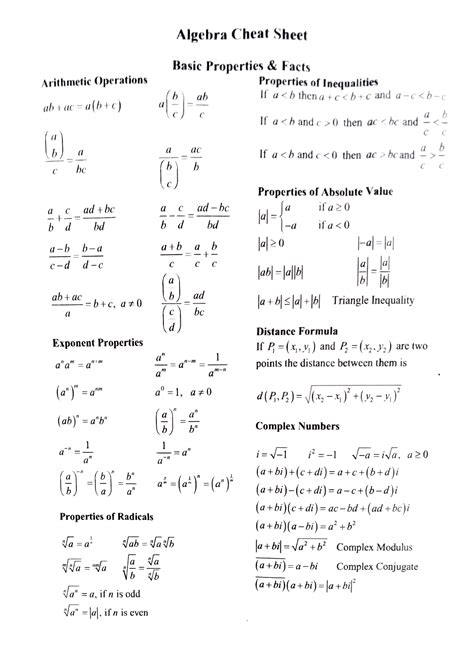 Algebra Cheat Sheet
Basic Properties & Facts
Arithmetic Operations
ab + ac = a(b + c)    a(b/c) = ab/c
(a/b)/c = a/(bc)    a/(b/c) = ac/b
a/b + c/d = (ad + bc)/(bd)    a/b − c/d = (ad − bc)/(bd)
(a − b)/(c − d) = (b − a)/(d − c)    (a + b)/c = a/c + b/c
(ab + ac)/a = b + c, a ≠ 0    (a/b)/(c/d) = ad/(bc)
Exponent Properties
aⁿaᵐ = aⁿ⁺ᵐ    aⁿ/aᵐ = aⁿ⁻ᵐ = 1/aᵐ⁻ⁿ
(aⁿ)ᵐ = aⁿᵐ    a⁰ = 1, a ≠ 0
(ab)ⁿ = aⁿbⁿ    (a/b)ⁿ = aⁿ/bⁿ
a⁻ⁿ = 1/aⁿ    1/a⁻ⁿ = aⁿ
(a/b)⁻ⁿ = (b/a)ⁿ = bⁿ/aⁿ
Properties of Radicals
ⁿ√a = a^(1/n)    ⁿ√(ab) = ⁿ√a ⁿ√b
ᵐ√(ⁿ√a) = ⁿᵐ√a    ⁿ√(a/b) = ⁿ√a/ⁿ√b
ⁿ√(aⁿ) = a, if n is odd
ⁿ√(aⁿ) = |a|, if n is even
Properties of Inequalities
If a < b then a + c < b + c and a − c < b − c
If a < b and c > 0 then ac < bc and a/c < b/c
If a < b and c < 0 then ac > bc and a/c > b/c
Properties of Absolute Value
|a| = { a if a ≥ 0
−a if a < 0
|a| ≥ 0    |−a| = |a|
|ab| = |a||b|    |a/b| = |a|/|b|
|a + b| ≤ |a| + |b|    Triangle Inequality
Distance Formula
If P₁ = (x₁, y₁) and P₂ = (x₂, y₂) are two
points the distance between them is
d(P₁, P₂) = √((x₂ − x₁)² + (y₂ − y₁)²)
Complex Numbers
i = √−1    i² = −1    √−a = i√a, a ≥ 0
(a + bi) + (c + di) = a + c + (b + d)i
(a + bi) − (c + di) = a − c + (b − d)i
(a + bi)(c + di) = ac − bd + (ad + bc)i
(a + bi)(a − bi) = a² + b²
|a + bi| = √(a² + b²)    Complex Modulus
\overline{(a + bi)} = a − bi    Complex Conjugate
\overline{(a + bi)}(a + bi) = |a + bi|²